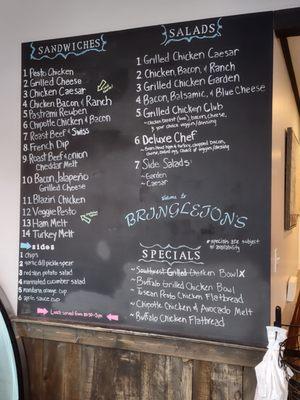 SANDWICHES
1 Pesto Chicken
2 Grilled Cheese
3 Chicken Caesar
4 Chicken Bacon & Ranch
5 Pastrami Reuben
6 Chipotle Chicken & Bacon
7 Roast Beef & Swiss
8 French Dip
9 Roast Beef & onion
Cheddar Melt
10 Bacon Jalapeño
Grilled Cheese
11 Blazin' Chicken
12 Veggie Pesto
13 Ham Melt
14 Turkey Melt
sides
1 chips
2 garlic dill pickle spear
3 red skin potato salad
4 marinated cucumber salad
5 mandarin orange cup
6 apple sauce cup
Lunch served from 10:30-3pm
SALADS
1 Grilled Chicken Caesar
2 Chicken, Bacon, & Ranch
3 Grilled Chicken Garden
4 Bacon, Balsamic, & Blue Cheese
5 Grilled Chicken Club
6 Deluxe Chef
7 Side Salads
~ Garden
~ Caesar
welcome to
BRINGLETONS
* specials are subject
to availability
SPECIALS
~ Southwest Grilled Chicken Bowl X
~ Buffalo Grilled Chicken Bowl
~ Tuscan Pesto Chicken Flatbread
~ Chipotle Chicken & Avocado Melt
~ Buffalo Chicken Flatbread